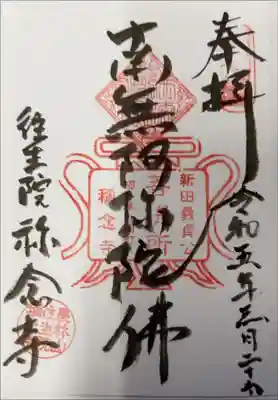 奉拝
令和五年三月二十九
南無阿弥陀佛
新田義貞公
墓所
称念寺
往生院
称念寺